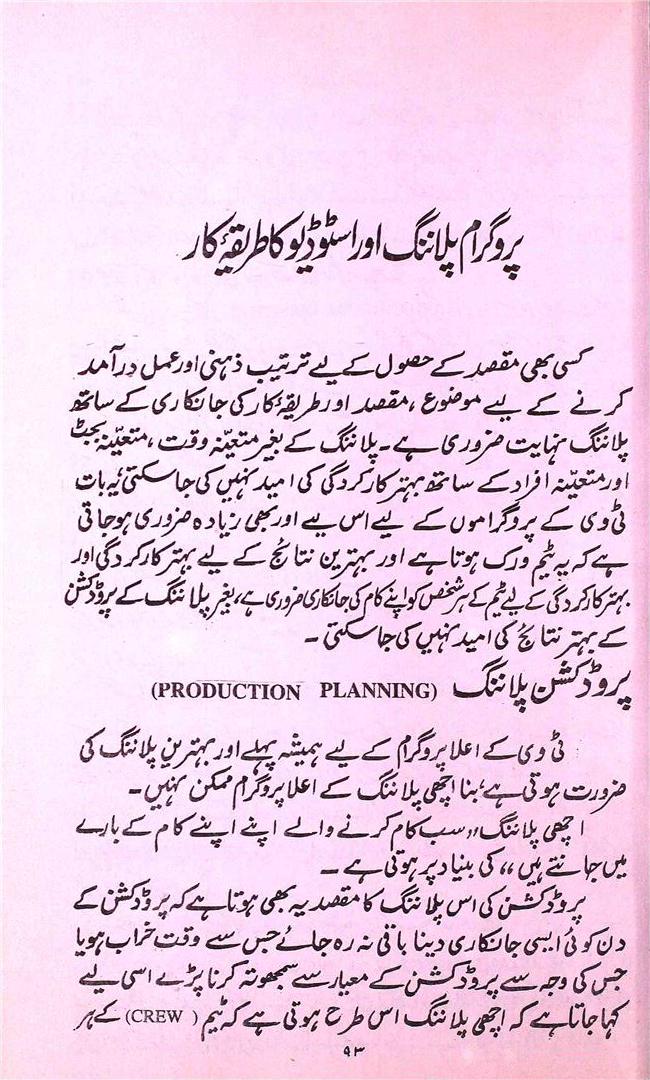 پروگرام پلاننگ اور اسٹوڈیو کا طریقۂ کار
کسی بھی مقصد کے حصول کے لیے ترتیب ذہنی اور عمل درآمد
کرنے کے لیے موضوع، مقصد اور طریقۂ کار کی جانکاری کے ساتھ
پلاننگ نہایت ضروری ہے۔ پلاننگ کے بغیر متعیّنہ وقت، متعیّنہ بجٹ
اور متعیّنہ افراد کے ساتھ بہتر کارکردگی کی امید نہیں کی جاسکتی، یہ بات
ٹی وی کے پروگراموں کے لیے اس لیے اور بھی زیادہ ضروری ہوجاتی
ہے کہ یہ ٹیم ورک ہوتا ہے اور بہترین نتائج کے لیے بہتر کارکردگی اور
بہتر کارکردگی کے لیے ٹیم کے ہر شخص کو اپنے کام کی جانکاری ضروری ہے، بغیر پلاننگ کے پروڈکشن
کے بہتر نتائج کی امید نہیں کی جاسکتی۔
پروڈکشن پلاننگ (PRODUCTION PLANNING)
ٹی وی کے اعلا پروگرام کے لیے ہمیشہ پہلے اور بہترین پلاننگ کی
ضرورت ہوتی ہے، بنا اچھی پلاننگ کے اعلا پروگرام ممکن نہیں۔
اچھی پلاننگ ,,سب کام کرنے والے اپنے اپنے کام کے بارے
میں جانتے ہیں،، کی بنیاد پر ہوتی ہے۔
پروڈکشن کی اس پلاننگ کا مقصد یہ بھی ہوتا ہے کہ پروڈکشن کے
دن کوئی ایسی جانکاری دینا باقی نہ رہ جائے جس سے وقت خراب ہو یا
جس کی وجہ سے پروڈکشن کے معیار سے سمجھوتہ کرنا پڑے اسی لیے
کہا جاتا ہے کہ اچھی پلاننگ اس طرح ہوتی ہے کہ ٹیم (CREW) کے ہر
۹۳